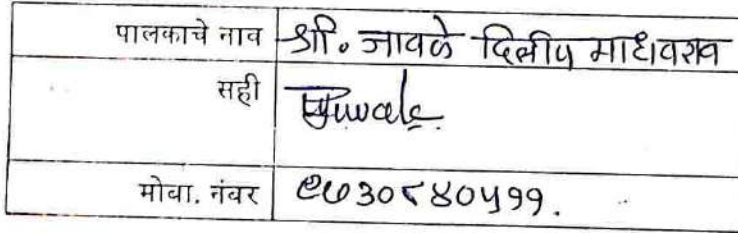 पालकाचे नाव श्री. जावळे दिलीप माधवराव
सही
मोबा. नंबर ९७३०८४०५११.